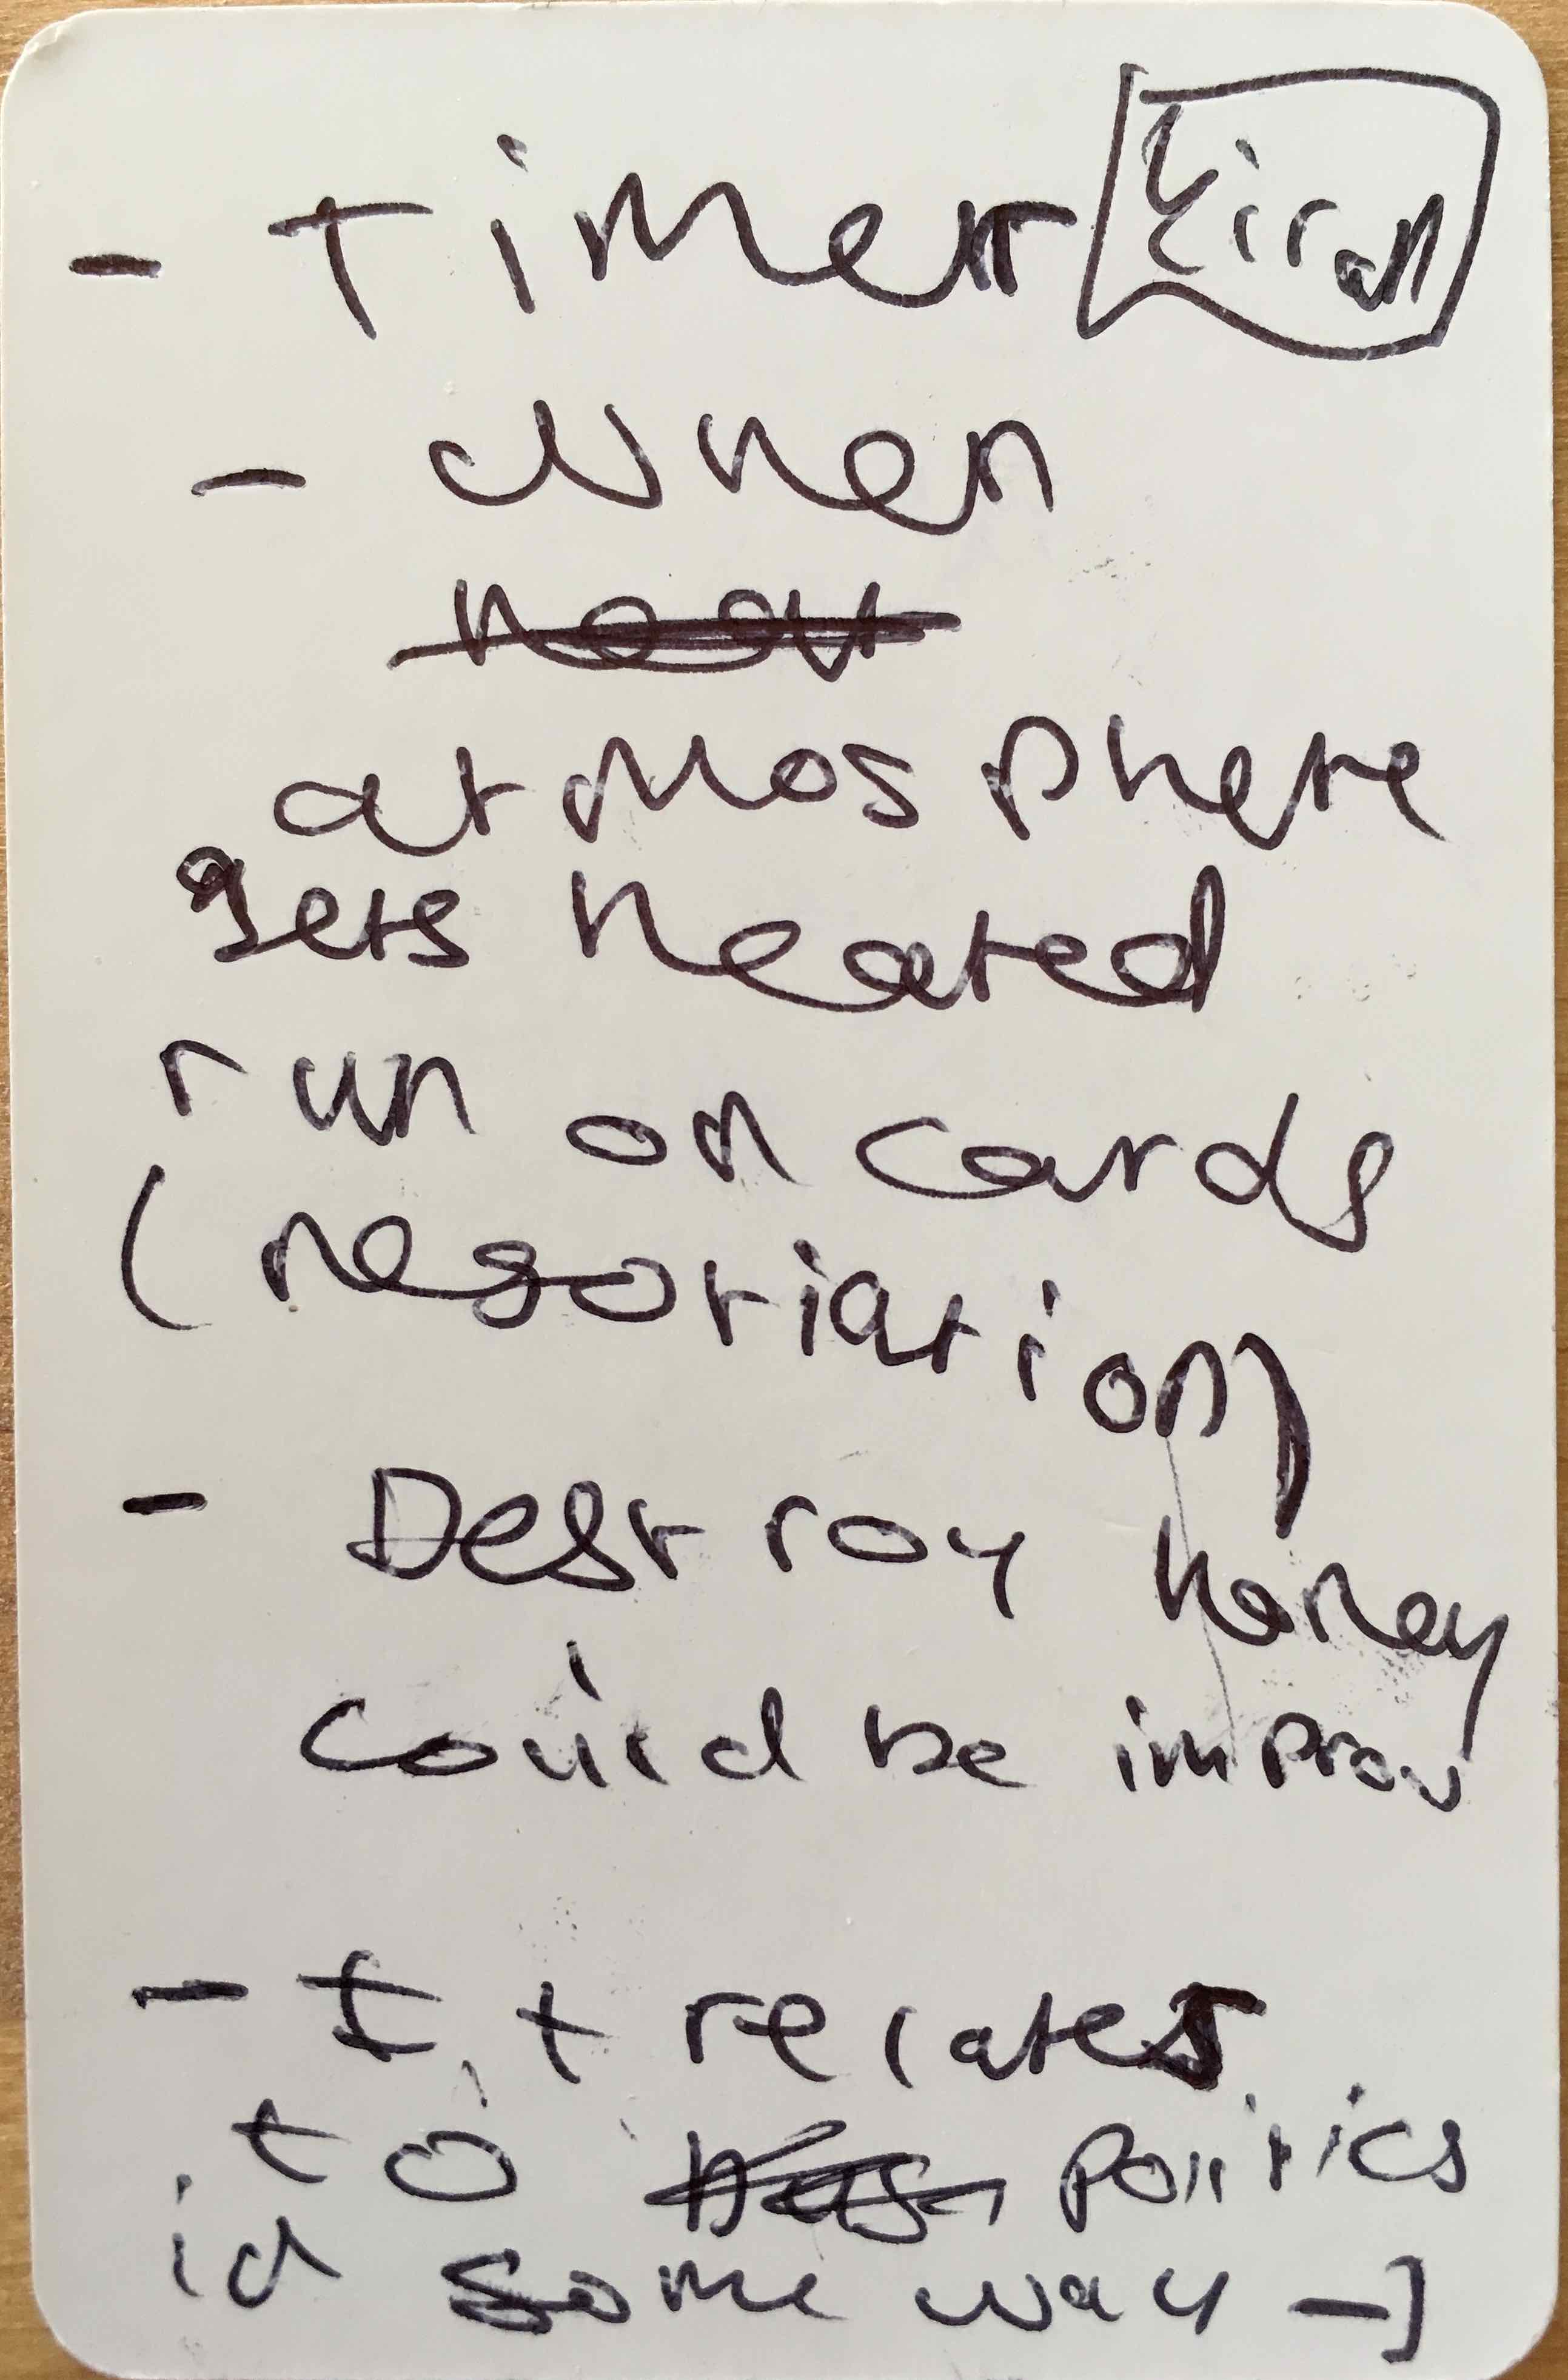 - Timer Kiran
- When
heat
atmosphere
gets heated
run on cards
(negotiation)
- Destroy honey
could be improv
- It relates
to politics
in some way -]